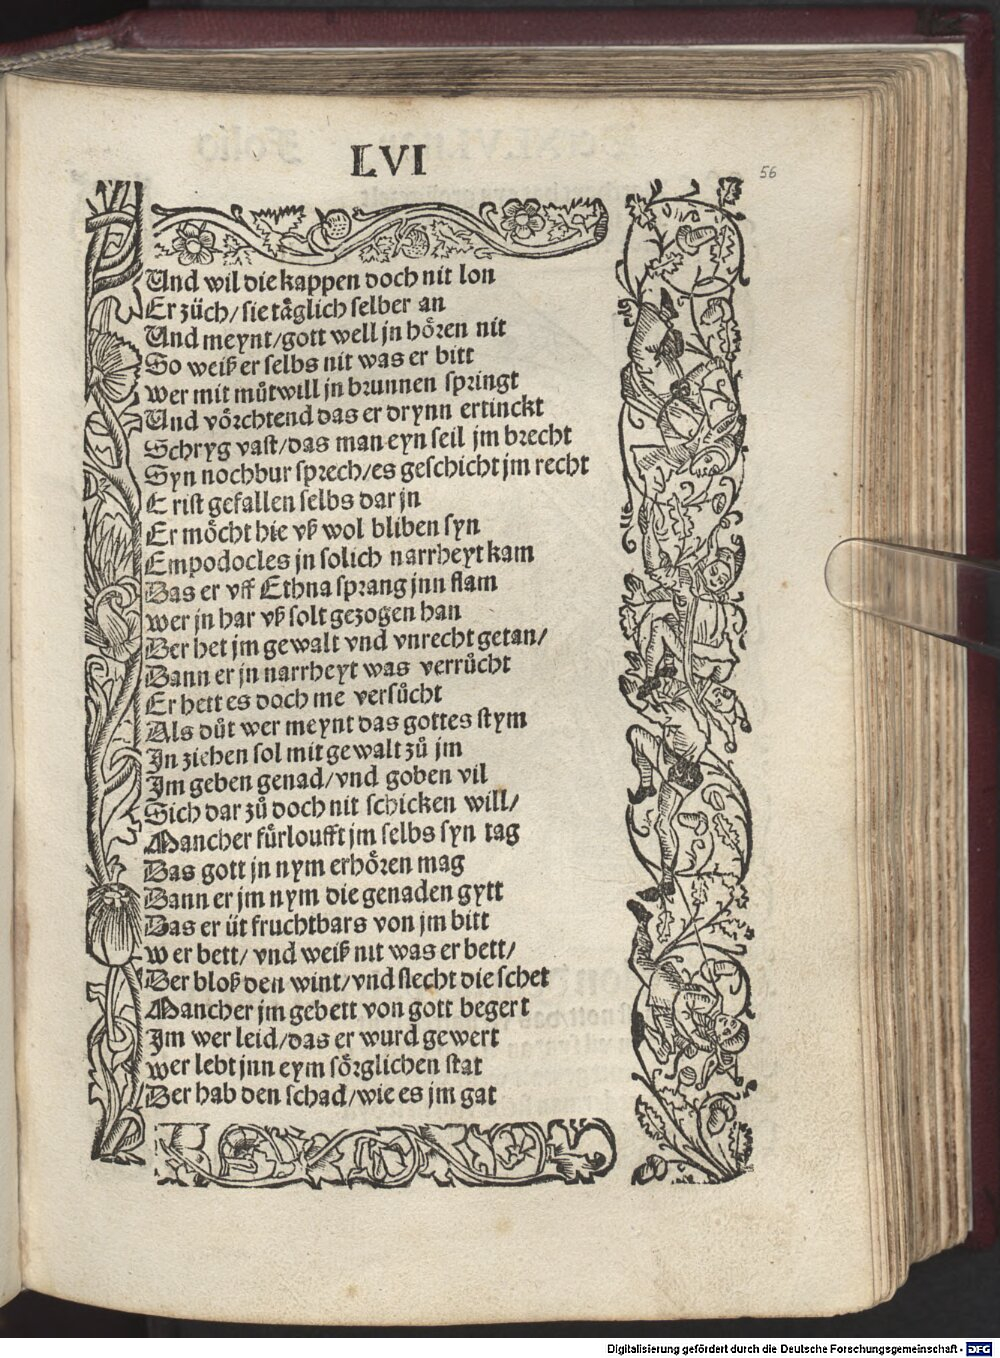 LVI
56
Und wil die kappen doch nit lon
Er züch/ sie täglich selber an
Und meynt/ gott well jn hören nit
So weiß er selbs nit was er bitt
wer mit můtwill jn brunnen springt
Und vörchtend das er drynn ertinckt
Schryg vast/ das man eyn seil jm brecht
Syn nochbur sprech/ es geschicht jm recht
E rist gefallen selbs dar jn
Er möcht hie vß wol bliben syn
Empodocles jn solich narrheyt kam
Das er vff Ethna sprang jnn flam
wer jn har vß solt gezogen han
Der het jm gewalt vnd vnrecht getan/
Dann er jn narrheyt was verrůcht
Er hett es doch me versůcht
Als důt wer meynt das gottes stym
Jn ziehen sol mit gewalt zů jm
Jm geben genad/ vnd goben vil
Sich dar zů doch nit schicken will/
Mancher fürloufft jm selbs syn tag
Das gott jn nym erhören mag
Dann er jm nym die genaden gytt
Das er üt fruchtbars von jm bitt
wer bett/ vnd weiß nit was er bett/
Der bloß den wint/ vnd slecht die schet
Mancher jm gebett von gott begert
Jm wer leid/ das er wurd gewert
wer lebt jnn eym sörglichen stat
Der hab den schad/ wie es jm gat
Digitalisierung gefördert durch die Deutsche Forschungsgemeinschaft - DFG